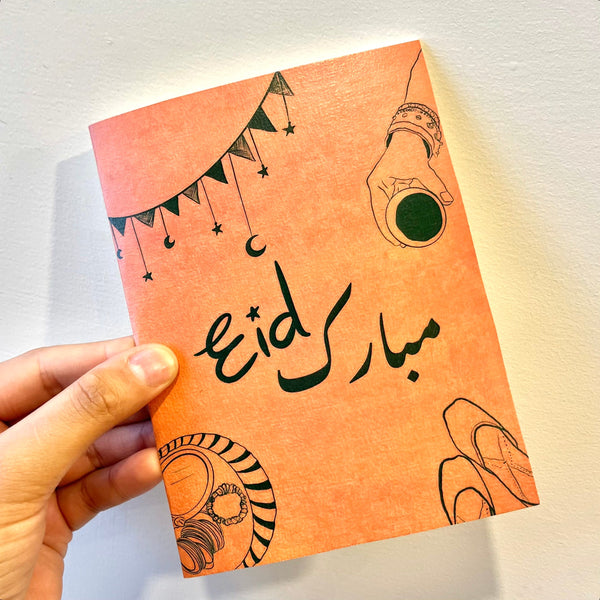 Eid مبارك